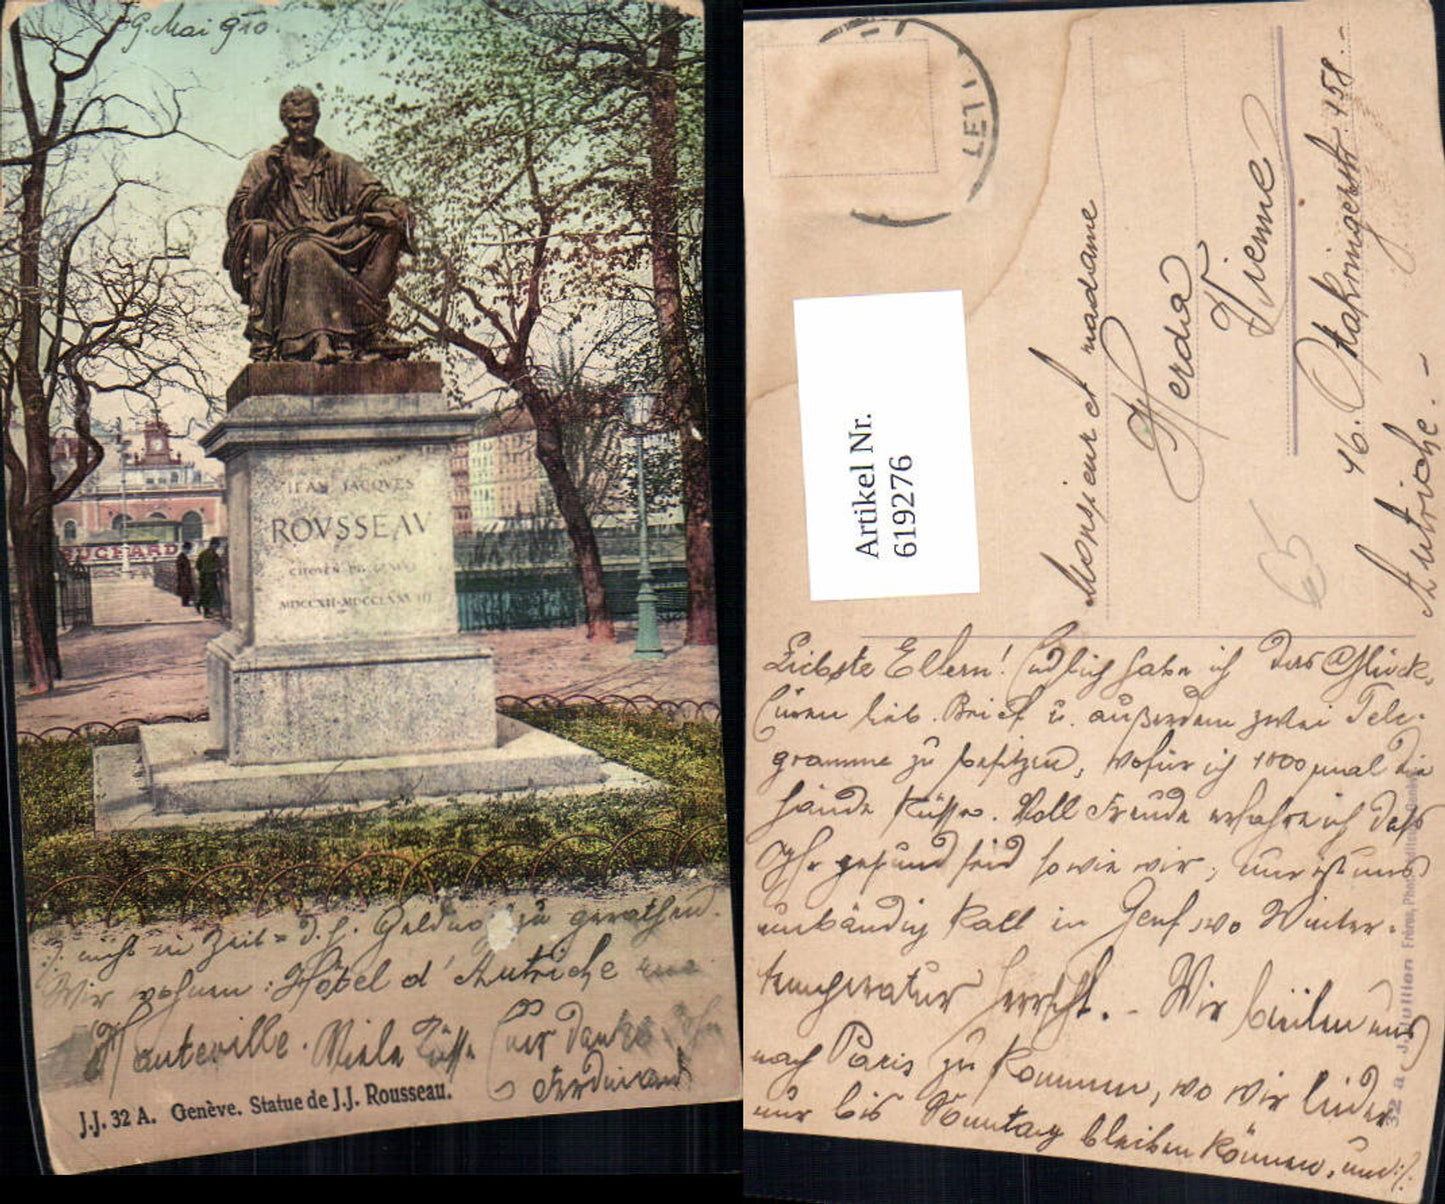 9. Mai 910.
JEAN JACQUES
ROVSSEAV
CITOYEN DE GENEVE
MDCCXII-MDCCLXXVIII
SUCHARD
:/: nicht in Zeit= d. h. Geldnot zu gerathen.
Wir wohnen: Hôtel d'Autriche
Hauteville. Viele Küsse Euer dankb.
Ferdinand
J.J. 32 A. Genève. Statue de J.J. Rousseau.
LETT
Artikel Nr.
6192276
Monsieur et madame
Herda
Vienne
16. Ottakringerstr. 158.-
Autriche.-
65
Liebste Eltern! Endlich habe ich das Glück,
Euren lieb. Brief u. ausserdem zwei Tele-
gramme zu besitzen, wofür ich 1000 mal die
Hände küsse. Voll Freude erfahre ich dass
Ihr gesund seid sowie wir; nur ist uns
unbändig kalt in Genf, wo Winter-
temperatur herrscht. - Wir eilen nun
nach Paris zu kommen, wo wir leider
nur bis Sonntag bleiben können, um :/:
32 a J. Jullien Frères, Phot. Editeurs, Genève